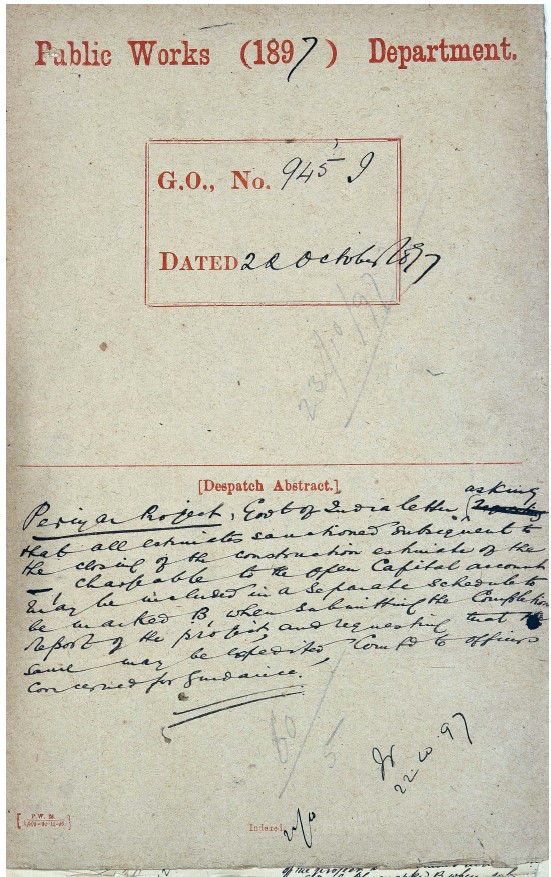 Public Works (1897) Department.
G.O., No. 945 I
DATED 22 October 1897
23/10/97
[Despatch Abstract.]
asking
Periyar Project, Govt of India letter
that all estimates sanctioned subsequent to
the closing of the construction estimate of the
— chargeable to the open Capital account
may be included in a separate schedule to
be marked B when submitting the Completion
report of the project and requesting that the
same may be expedited Comd to officers
concerned for guidance.
60
5
22.10.97
[P. W. 
Indexed
of the project
marked B when